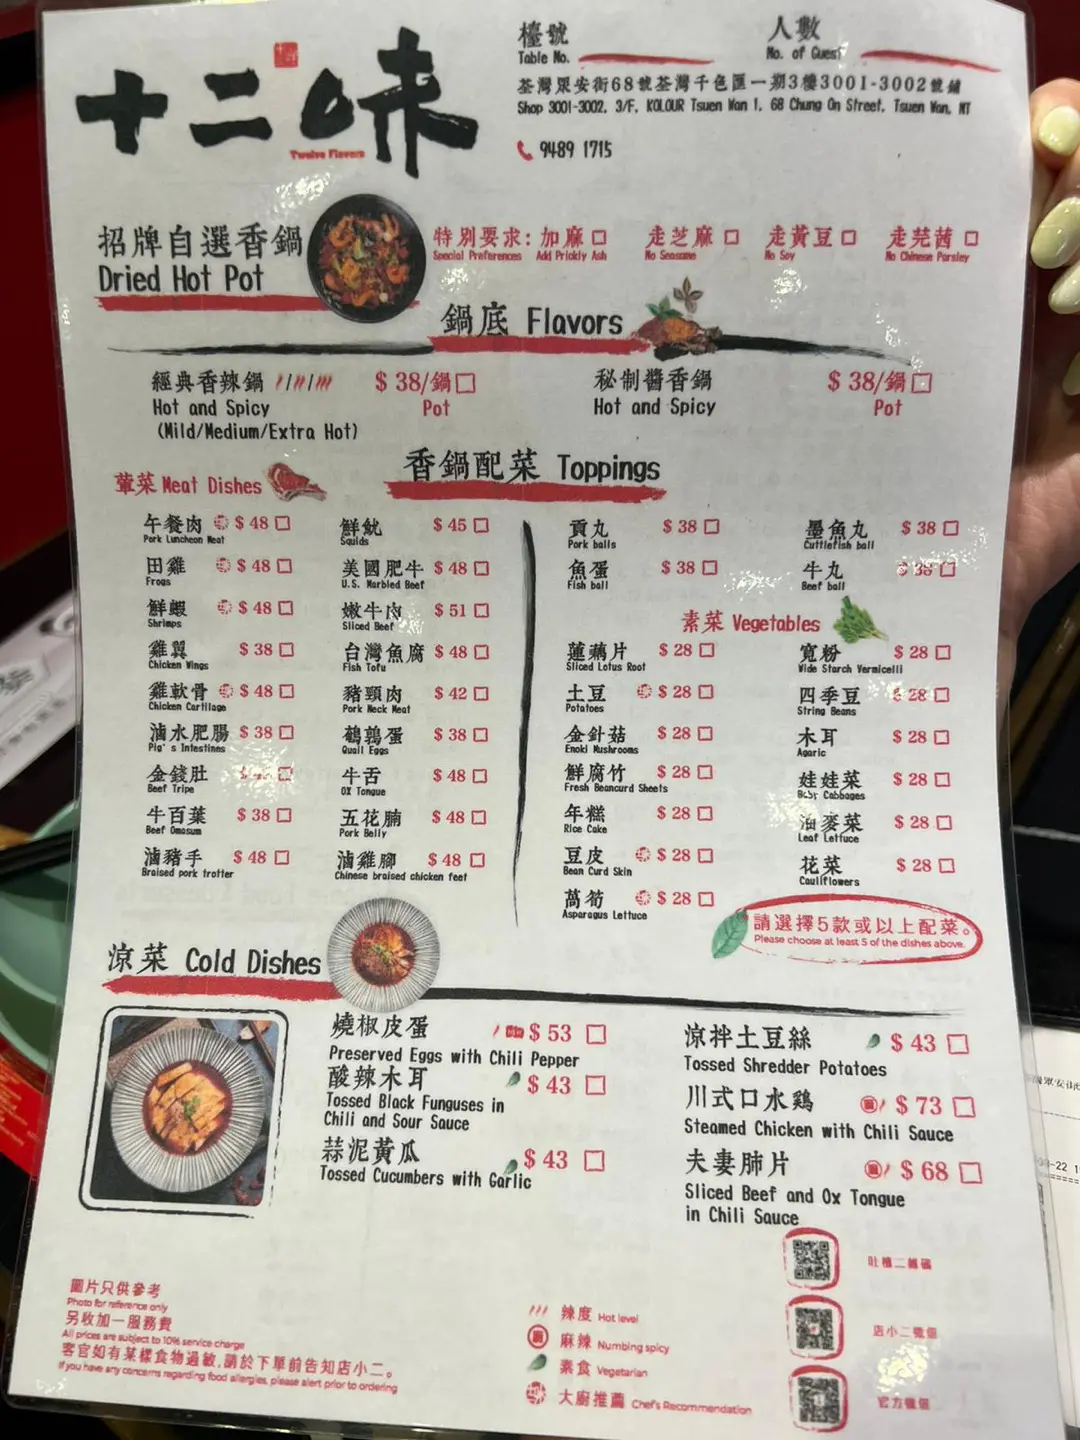 十二味
Twelve Flavors
檯號
Table No.
人數
No. of Guest
荃灣眾安街68號荃灣千色匯一期3樓3001-3002號鋪
Shop 3001-3002, 3/F, KOLOUR Tsuen Wan 1, 68 Chung On Street, Tsuen Wan, NT
9489 1715
招牌自選香鍋
Dried Hot Pot
特別要求: 加麻 走芝麻 走黃豆 走芫茜
Special Preferences Add Prickly Ash No Seasame No Soy No Chinese Parsley
鍋底 Flavors
經典香辣鍋 / / $ 38/鍋
Hot and Spicy Pot
(Mild/Medium/Extra Hot)
秘制醬香鍋 $ 38/鍋
Hot and Spicy Pot
香鍋配菜 Toppings
葷菜 Meat Dishes
午餐肉 $ 48
Pork Luncheon Meat
田雞 $ 48
Frogs
鮮蝦 $ 48
Shrimps
雞翼 $ 38
Chicken Wings
雞軟骨 $ 48
Chicken Cartilage
滷水肥腸 $ 38
Pig's Intestines
金錢肚
Beef Tripe
牛百葉 $ 38
Beef Omasum
滷豬手 $ 48
Braised pork trotter
鮮魷 $ 45
Squids
美國肥牛 $ 48
U.S. Marbled Beef
嫩牛肉 $ 51
Sliced Beef
台灣魚腐 $ 48
Fish Tofu
豬頸肉 $ 42
Pork Neck Meat
鵪鶉蛋 $ 38
Quail Eggs
牛舌 $ 48
OX Tongue
五花腩 $ 48
Pork Belly
滷雞腳 $ 48
Chinese braised chicken feet
貢丸 $ 38
Pork balls
魚蛋 $ 38
Fish ball
墨魚丸 $ 38
Cuttlefish ball
牛丸 $ 38
Beef ball
素菜 Vegetables
蓮藕片 $ 28
Sliced Lotus Root
土豆 $ 28
Potatoes
金針菇 $ 28
Enoki Mushrooms
鮮腐竹 $ 28
Fresh Beancurd Sheets
年糕 $ 28
Rice Cake
豆皮 $ 28
Bean Curd Skin
萵筍 $ 28
Asparagus Lettuce
寬粉 $ 28
Wide Starch Vermicelli
四季豆 $ 28
String Beans
木耳 $ 28
Agaric
娃娃菜 $ 28
Baby Cabbages
油麥菜 $ 28
Leaf Lettuce
花菜 $ 28
Cauliflowers
請選擇5款或以上配菜。
Please choose at least 5 of the dishes above.
涼菜 Cold Dishes
燒椒皮蛋 $ 53
Preserved Eggs with Chili Pepper
酸辣木耳 $ 43
Tossed Black Funguses in
Chili and Sour Sauce
蒜泥黃瓜 $ 43
Tossed Cucumbers with Garlic
涼拌土豆絲 $ 43
Tossed Shredder Potatoes
川式口水鶏 $ 73
Steamed Chicken with Chili Sauce
夫妻肺片 $ 68
Sliced Beef and Ox Tongue
in Chili Sauce
圖片只供參考
Photo for reference only
另收加一服務費
All prices are subject to 10% service charge
客官如有某樣食物過敏,請於下單前告知店小二。
If you have any concerns regarding food allergies, please alert prior to ordering
辣度 Hot level
麻辣 Numbing spicy
素食 Vegetarian
大廚推薦 Chef's Recommendation